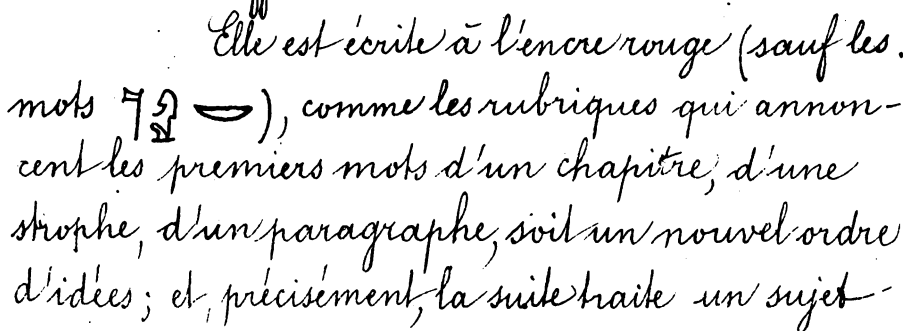 Elle est écrite à l'encre rouge (sauf les
mots 𓊹𓀭𓎟), comme les rubriques qui annon-
cent les premiers mots d'un chapitre, d'une
strophe, d'un paragraphe, soit un nouvel ordre
d'idées; et, précisément, la suite traite un sujet